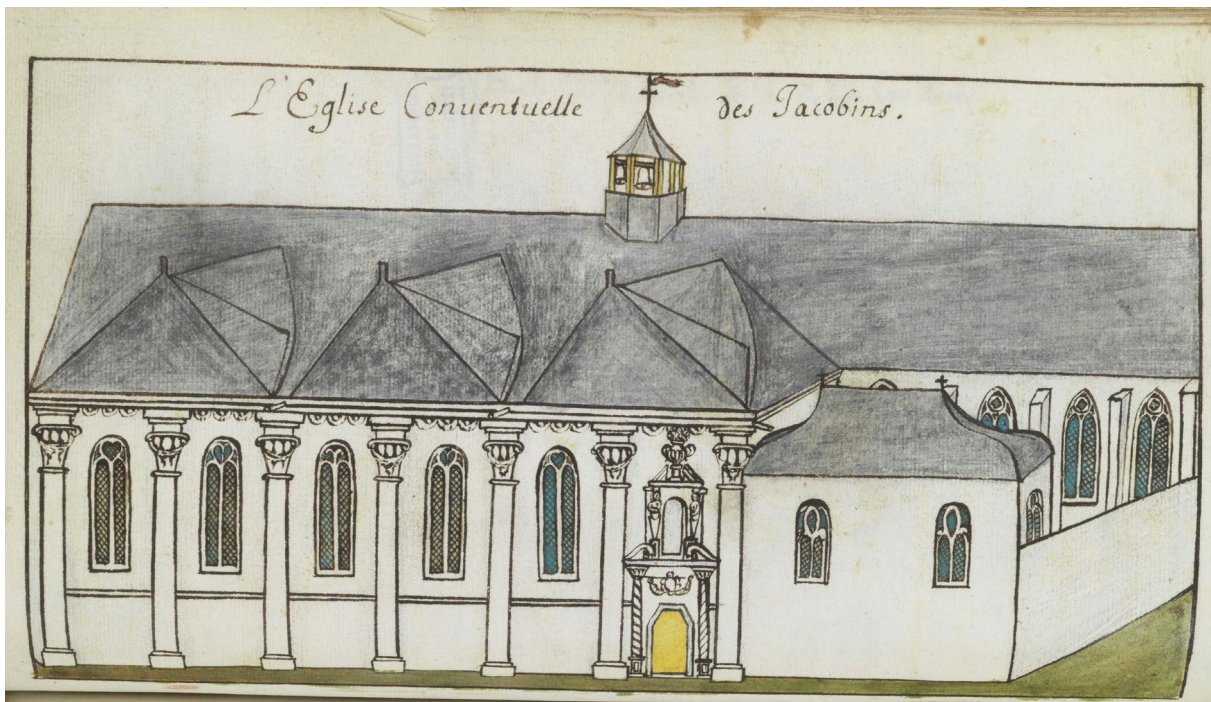 L'Eglise Conuentuelle des Jacobins.